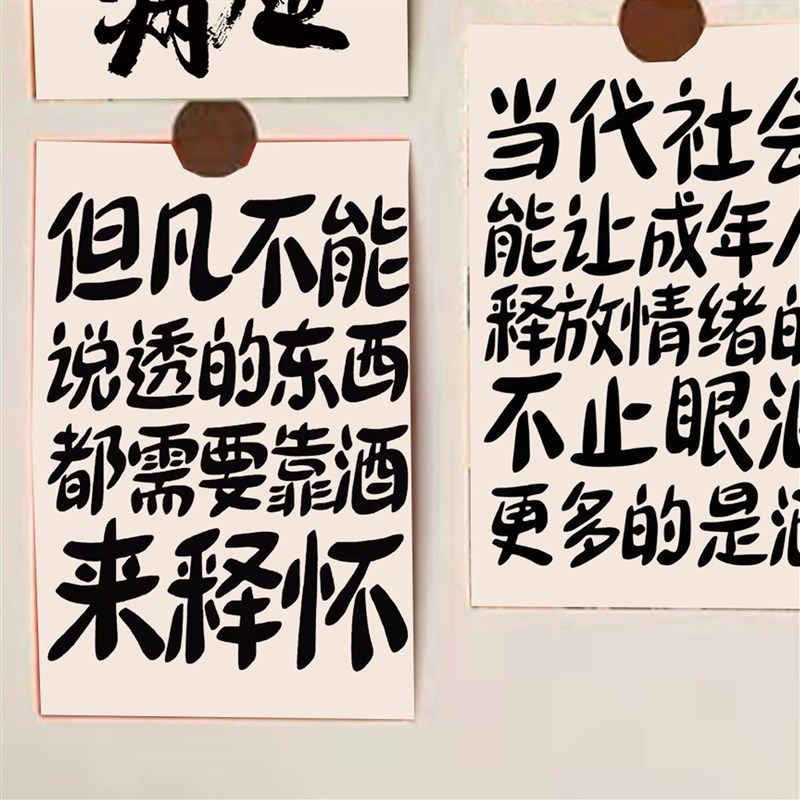 但凡不能
说透的东西
都需要靠酒
来释怀
当代社会
能让成年人
释放情绪的
不止眼泪
更多的是酒